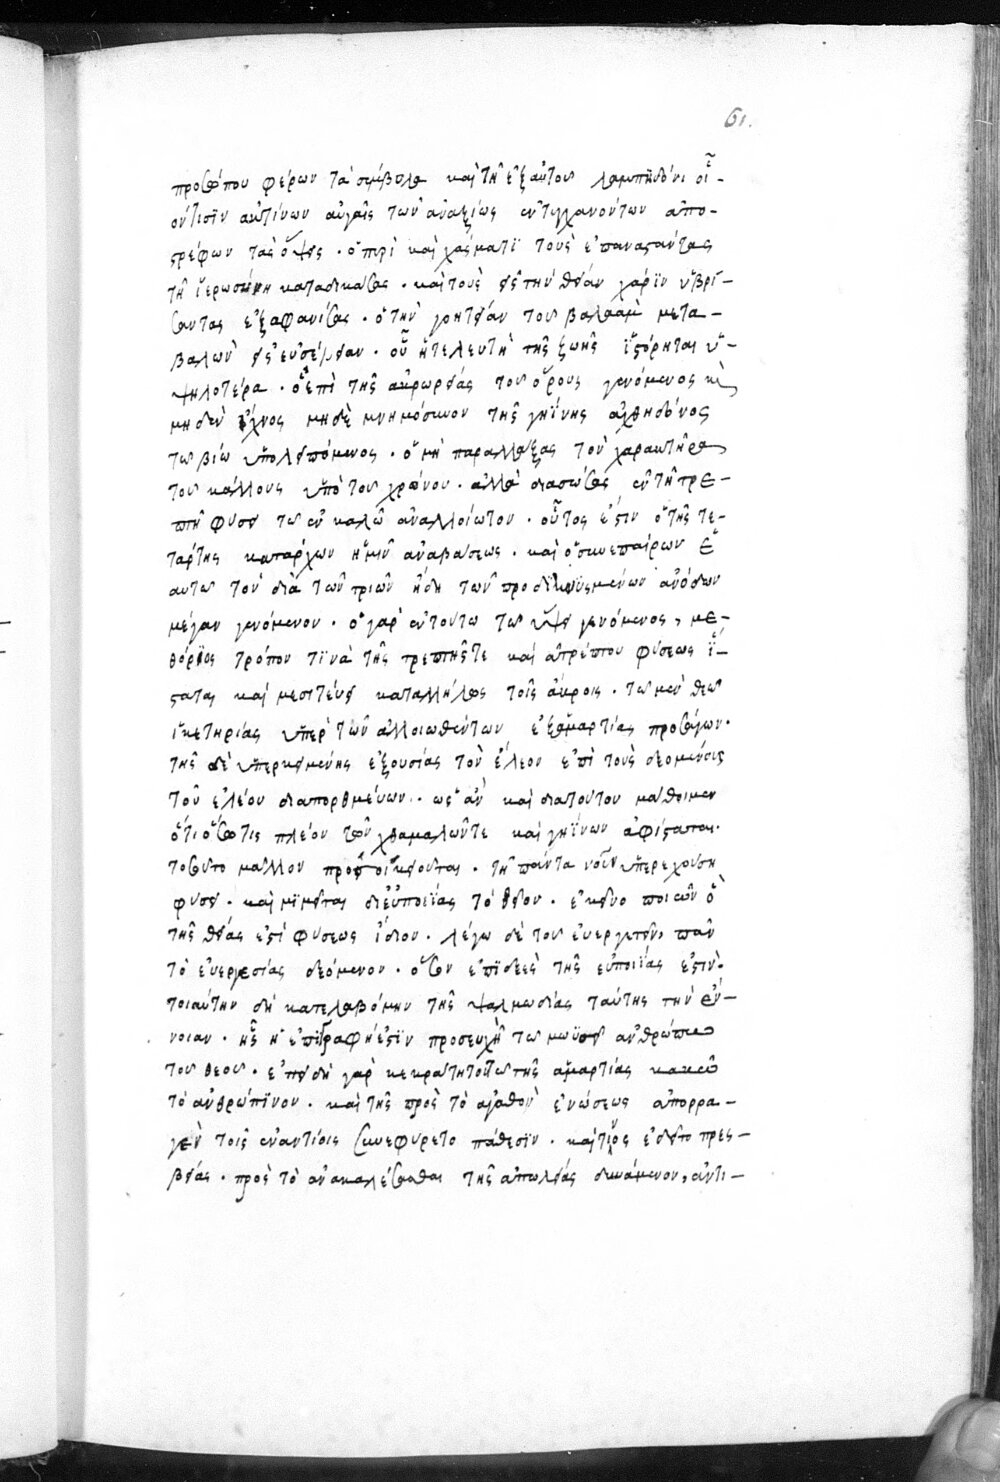 61.
προσώπου φέρων τὰ σύμβολα καὶ τῇ ἐξ αὐτοῦ λαμπηδόνι οἷ-
όν τισιν ἀκτίνων αὐγαῖς τῶν ἀναξίως ἐντυγχανόντων ἀπο-
στρέφων τὰς ὄψεις · ὁ πυρὶ καὶ χάσματι τοὺς ἐπαναστάντας
τῇ ἱερωσύνῃ καταδικάσας · καὶ τοὺς εἰς τὴν θείαν χάριν ὑβρί-
σαντας ἐξαφανίσας · ὁ τὴν γοητείαν τοῦ βαλαὰμ μετα-
βαλὼν εἰς εὐσέβειαν · οὗ ἡ τελευτὴ τῆς ζωῆς ἱστόρηται ὑ-
ψηλοτέρα · ὁ ἐπὶ τῆς ἀκρωρείας τοῦ ὄρους γενόμενος κὶ
μηδὲν ἴχνος μηδὲ μνημόσυνον τῆς γηΐνης ἀχθηδόνος
τῷ βίῳ ὑπολειπόμενος · ὁ μὴ παραλλάξας τὸν χαρακτῆρα
τοῦ κάλλους ὑπὸ τοῦ χρόνου · ἀλλὰ διασώσας ἐν τῇ τρε-
πτῇ φύσει τὸ ἐν καλῶ ἀναλλοίωτον · οὗτος ἐστιν ὁ τῆς τε-
τάρτης κατάρχων ἡμῖν ἀναβάσεως · καὶ ὁ συνεπαίρων ἑ
αυτῶ τὸν διὰ τῶν τριῶν ἤδη τῶν προδιηνυσμένων ἀνόδων
μέγαν γενόμενον · ὁ γὰρ ἐν τούτω τῶ ὕψει γενόμενος, με-
θόριος τρόπον τινὰ τῆς τρεπτῆς τε καὶ ἀτρέπτου φύσεως ἵ-
σταται καὶ μεσιτεύει καταλλήλως τοῖς ἄκροις · τῶ μὲν θεῶ
ἱκετηρίας ὑπὲρ τῶν ἀλλοιωθέντων ἐξ ἁμαρτίας προσάγων ·
τῆς δὲ ὑπερκειμένης ἐξουσίας τὸν ἔλεον ἐπὶ τοὺς δεομένους
τοῦ ἐλέου διαπορθμεύων · ὡς ἂν καὶ διὰ τούτου μάθοιμεν
ὅτι ὅσω τις πλέον τῶν χθαμαλῶν τε καὶ γηΐνων ἀφίσταται
τοσοῦτο μᾶλλον προσοικειοῦται · τῇ πάντα νοῦν ὑπερεχούσῃ
φύσει · καὶ μιμεῖται δι' εὐποιΐας τὸ θεῖον · ἐκεῖνο ποιῶν ὅ
τῆς θείας ἐστὶ φύσεως ἴδιον · λέγω δὲ τοῦ εὐεργετεῖν πᾶν
τὸ εὐεργεσίας δεόμενον · ὅσον ἐπιδεὲς τῆς εὐποιΐας ἐστιν ·
τοιαύτην δὴ κατελαβόμην τῆς ψαλμωδίας ταύτης τὴν ἔν-
νοιαν · ἧς ἡ ἐπιγραφή ἐστιν προσευχὴ τῶ μωϋσεῖ ἀνθρώπω
τοῦ θεοῦ · ἐπειδὴ γὰρ κεκράτητο τῶ τῆς ἁμαρτίας κακῶ
τὸ ἀνθρώπινον · καὶ τῆς πρὸς τὸ ἀγαθὸν ἑνώσεως ἀπορρα-
γὲν τοῖς ἐναντίοις συνεφύρετο πάθεσιν · καί τινος ἐδεῖτο πρεσ-
βείας · πρὸς τὸ ἀνακαλέσασθαι τῆς ἀπωλείας δυνάμενον, ἀντι-